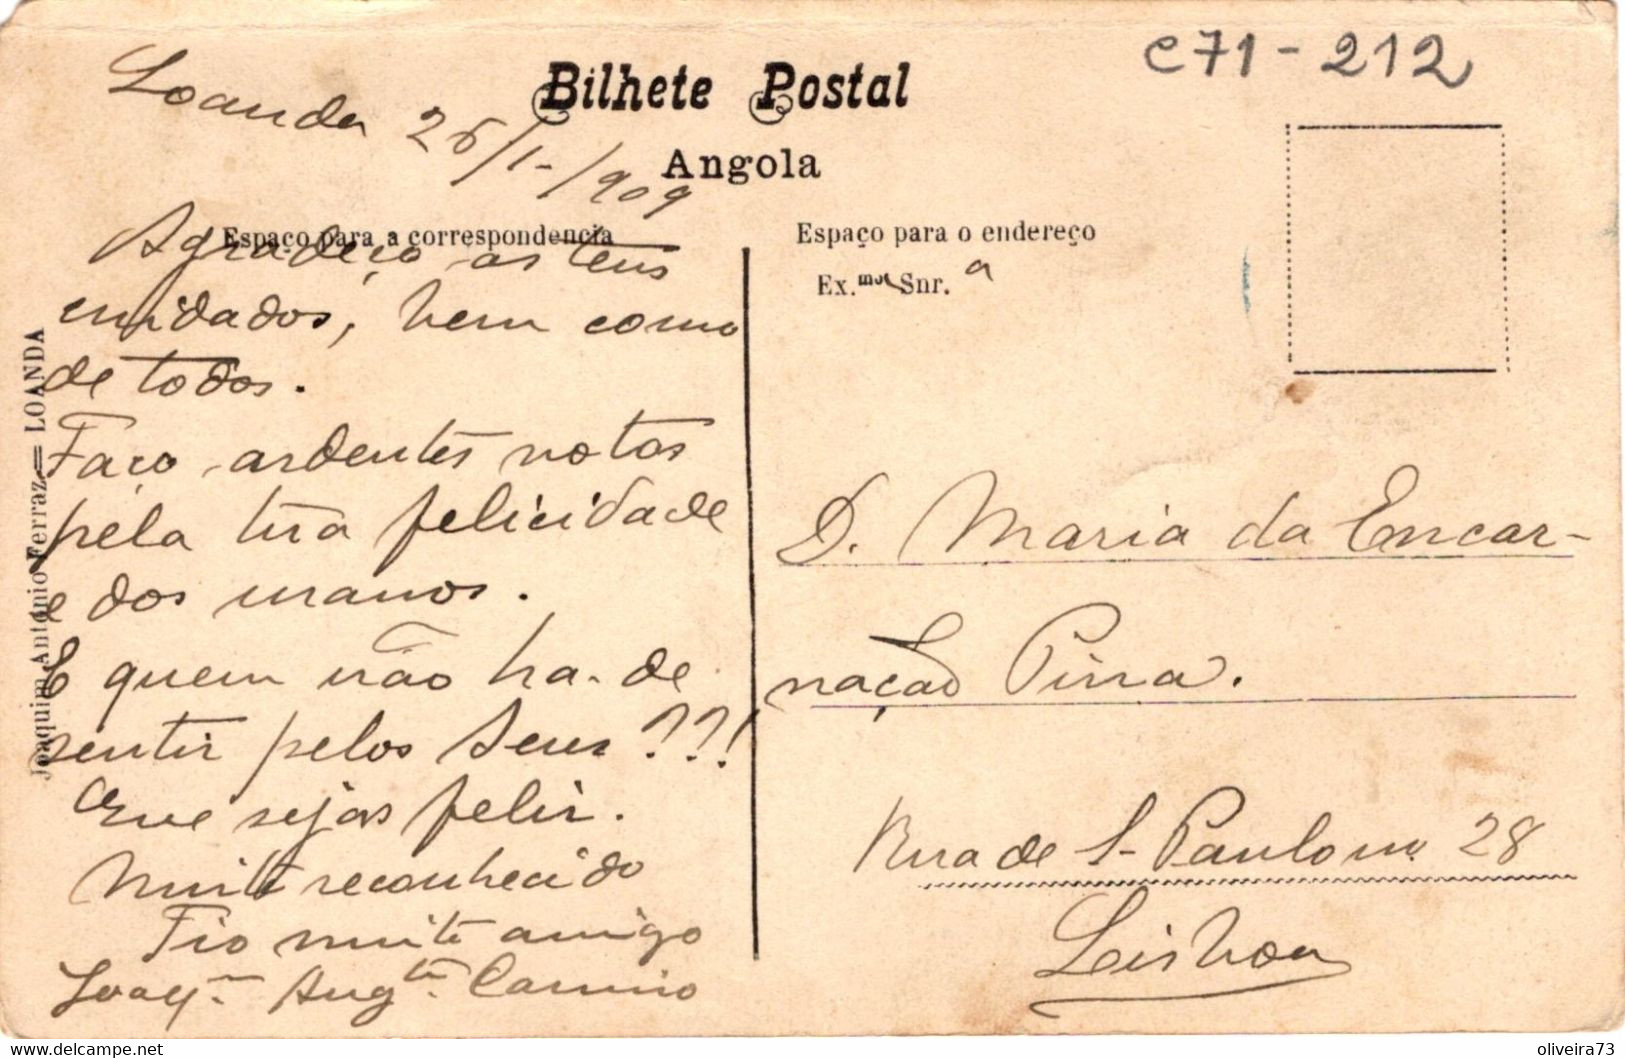 c71-212
Bilhete Postal
Angola
Loanda 26/1-/909
Espaço para a correspondencia
Agradeço os teus
cuidados, bem como
de todos.
Faço ardentes votos
pela tua felicidade
e dos manos.
E quem não ha-de
sentir pelos Seus ??!
Que sejas feliz.
Muito reconhecido
Tio muito amigo
Joaqm Augto
Joaquim António Ferraz = LOANDA
Espaço para o endereço
Ex.mo Snr.a
D. Maria da Encar-
nação Pina.
Rua de S. Paulo no 28
Lisboa
oliveira73
https://www.delcampe.net